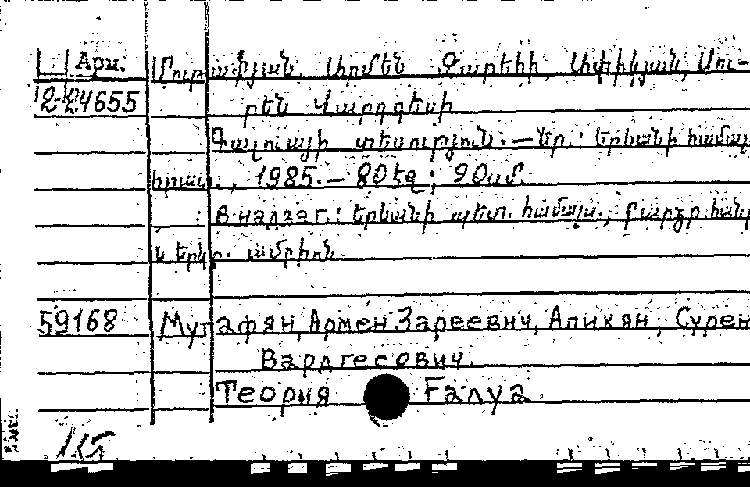 Арм. Մութաֆյան, Արմեն Զարեհի, Ափիկյան, Սու-
2-24655 րեն Վարդգեսի
Գալուայի տեսություն. — Եր.: Երևանի համալ
հրատ., 1985. — 80 էջ; 20 սմ.
В надзаг.: Երևանի պետ. համալս., բարձր հան
և երկր. ամբիոն
59168 Мутафян, Армен Зареевич, Апикян, Сурен
Вардгесович.
Теория Галуа
115